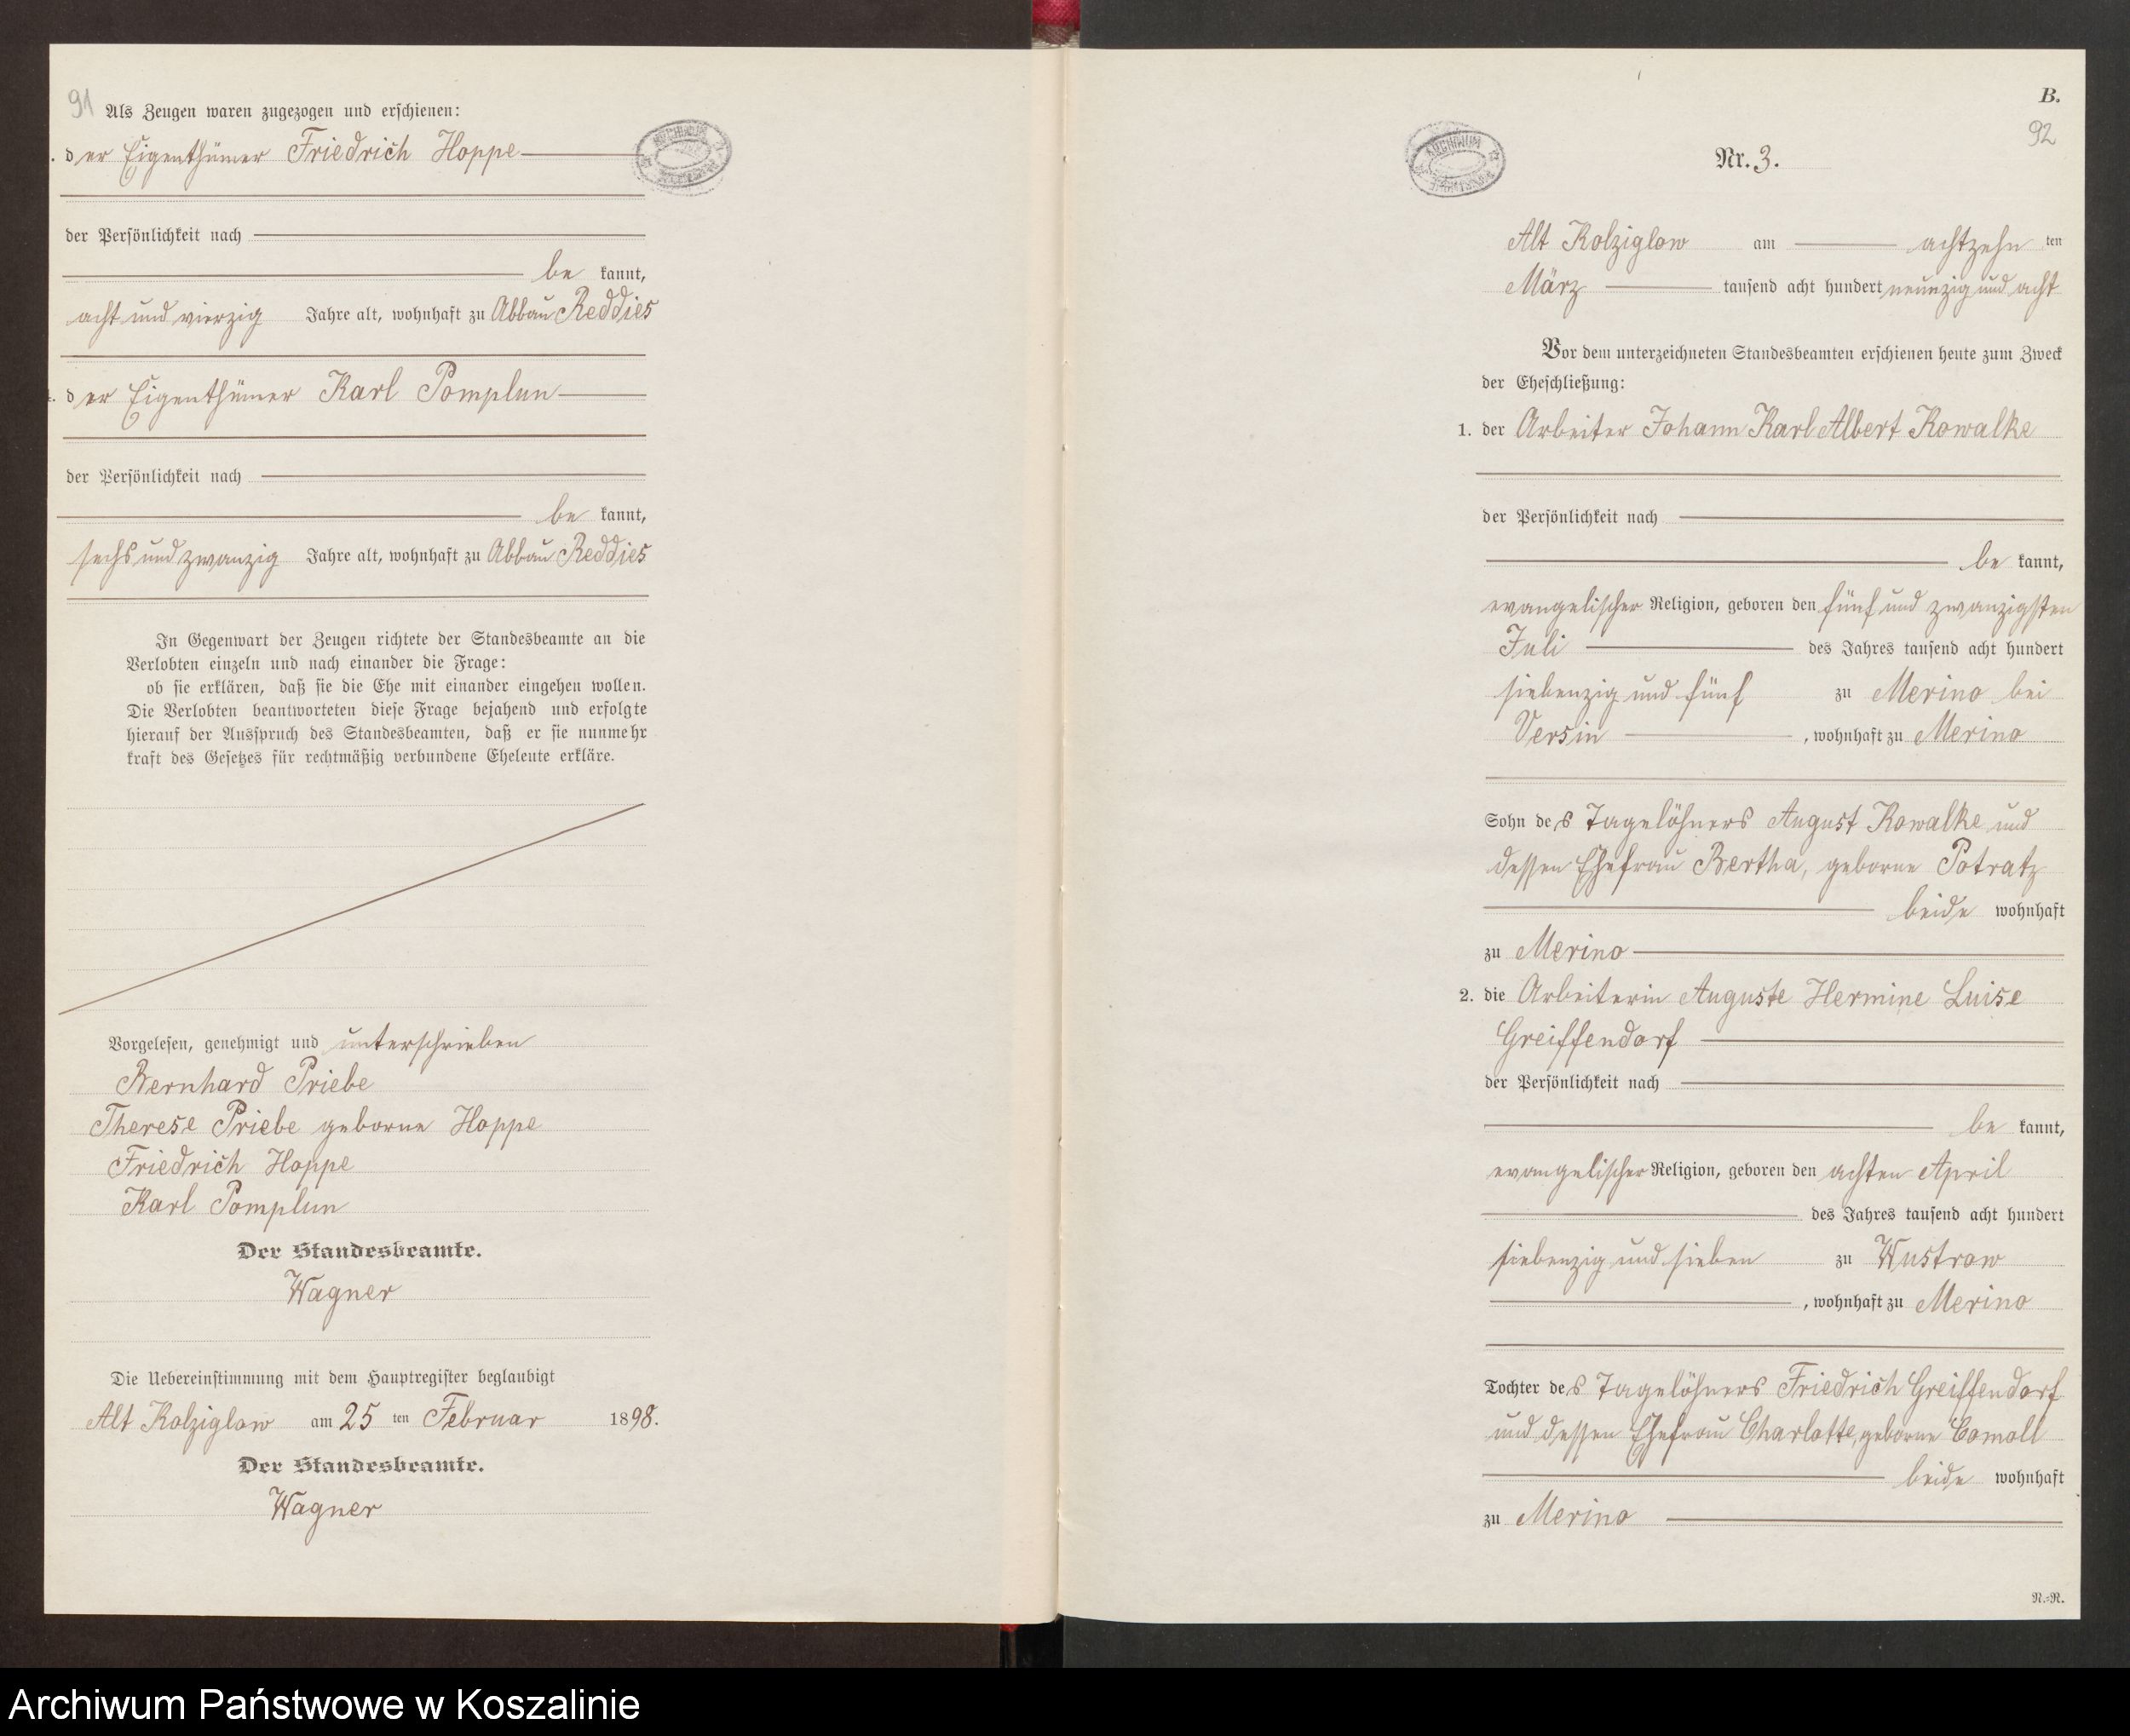 91
Als Zeugen waren zugezogen und erschienen:
der Eigenthümer Friedrich Hoppe
der Persönlichkeit nach
be kannt,
acht und vierzig Jahre alt, wohnhaft zu Abbau Reddies
der Eigenthümer Karl Pomplun
der Persönlichkeit nach
be kannt,
sechs und zwanzig Jahre alt, wohnhaft zu Abbau Reddies
In Gegenwart der Zeugen richtete der Standesbeamte an die
Verlobten einzeln und nach einander die Frage:
ob sie erklären, daß sie die Ehe mit einander eingehen wollen.
Die Verlobten beantworteten diese Frage bejahend und erfolgte
hierauf der Ausspruch des Standesbeamten, daß er sie nunmehr
kraft des Gesetzes für rechtmäßig verbundene Eheleute erkläre.
Vorgelesen, genehmigt und unterschrieben
Bernhard Priebe
Therese Priebe geborne Hoppe
Friedrich Hoppe
Karl Pomplun
Der Standesbeamte.
Wagner
Die Uebereinstimmung mit dem Hauptregister beglaubigt
Alt Kolziglow am 25 ten Februar 1898.
Der Standesbeamte.
Wagner
B.
92
Nr. 3.
Alt Kolziglow am achtzehn ten
März tausend acht hundert neunzig und acht
Vor dem unterzeichneten Standesbeamten erschienen heute zum Zweck
der Eheschließung:
1. der Arbeiter Johann Karl Albert Kowalke
der Persönlichkeit nach
be kannt,
evangelischer Religion, geboren den fünf und zwanzigsten
Juli des Jahres tausend acht hundert
siebenzig und fünf zu Merino bei
Versin , wohnhaft zu Merino
Sohn des Tagelöhners August Kowalke und
dessen Ehefrau Bertha, geborne Potratz
beide wohnhaft
zu Merino
2. die Arbeiterin Auguste Hermine Luise
Greiffendorf
der Persönlichkeit nach
be kannt,
evangelischer Religion, geboren den achten April
des Jahres tausend acht hundert
siebenzig und sieben zu Wustrow
, wohnhaft zu Merino
Tochter des Tagelöhners Friedrich Greiffendorf
und dessen Ehefrau Charlotte, geborne Comoll
beide wohnhaft
zu Merino
N.=N.
Archiwum Państwowe w Koszalinie